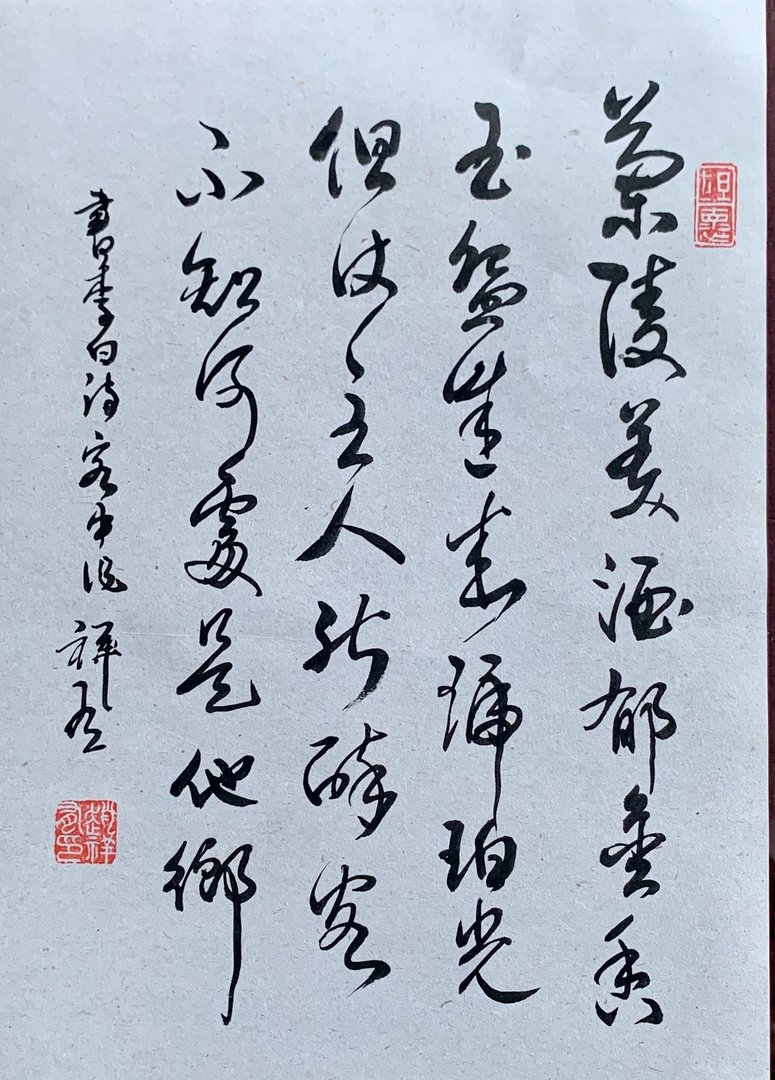 蘭陵美酒郁金香
玉盌盛来琥珀光
但使主人能醉客
不知何處是他鄉
書李白诗客中作 祥